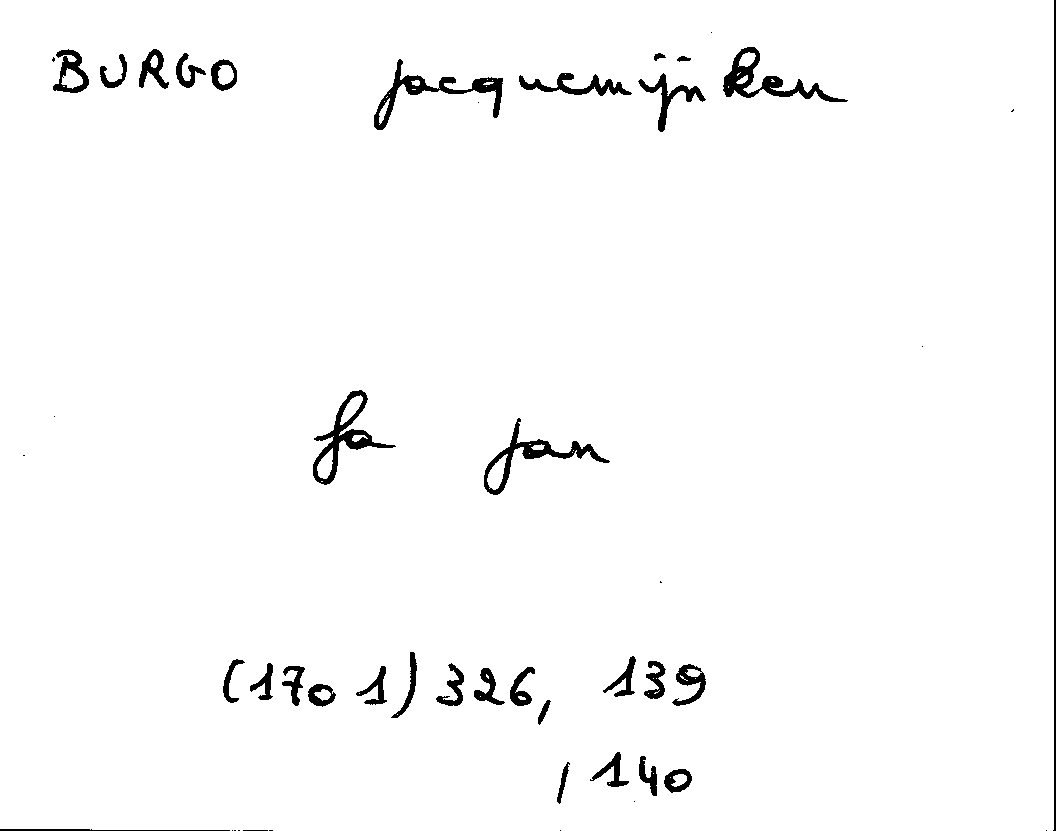 BURGO Jacquemijnken
fa Jan
(1701) 326, 139
, 140